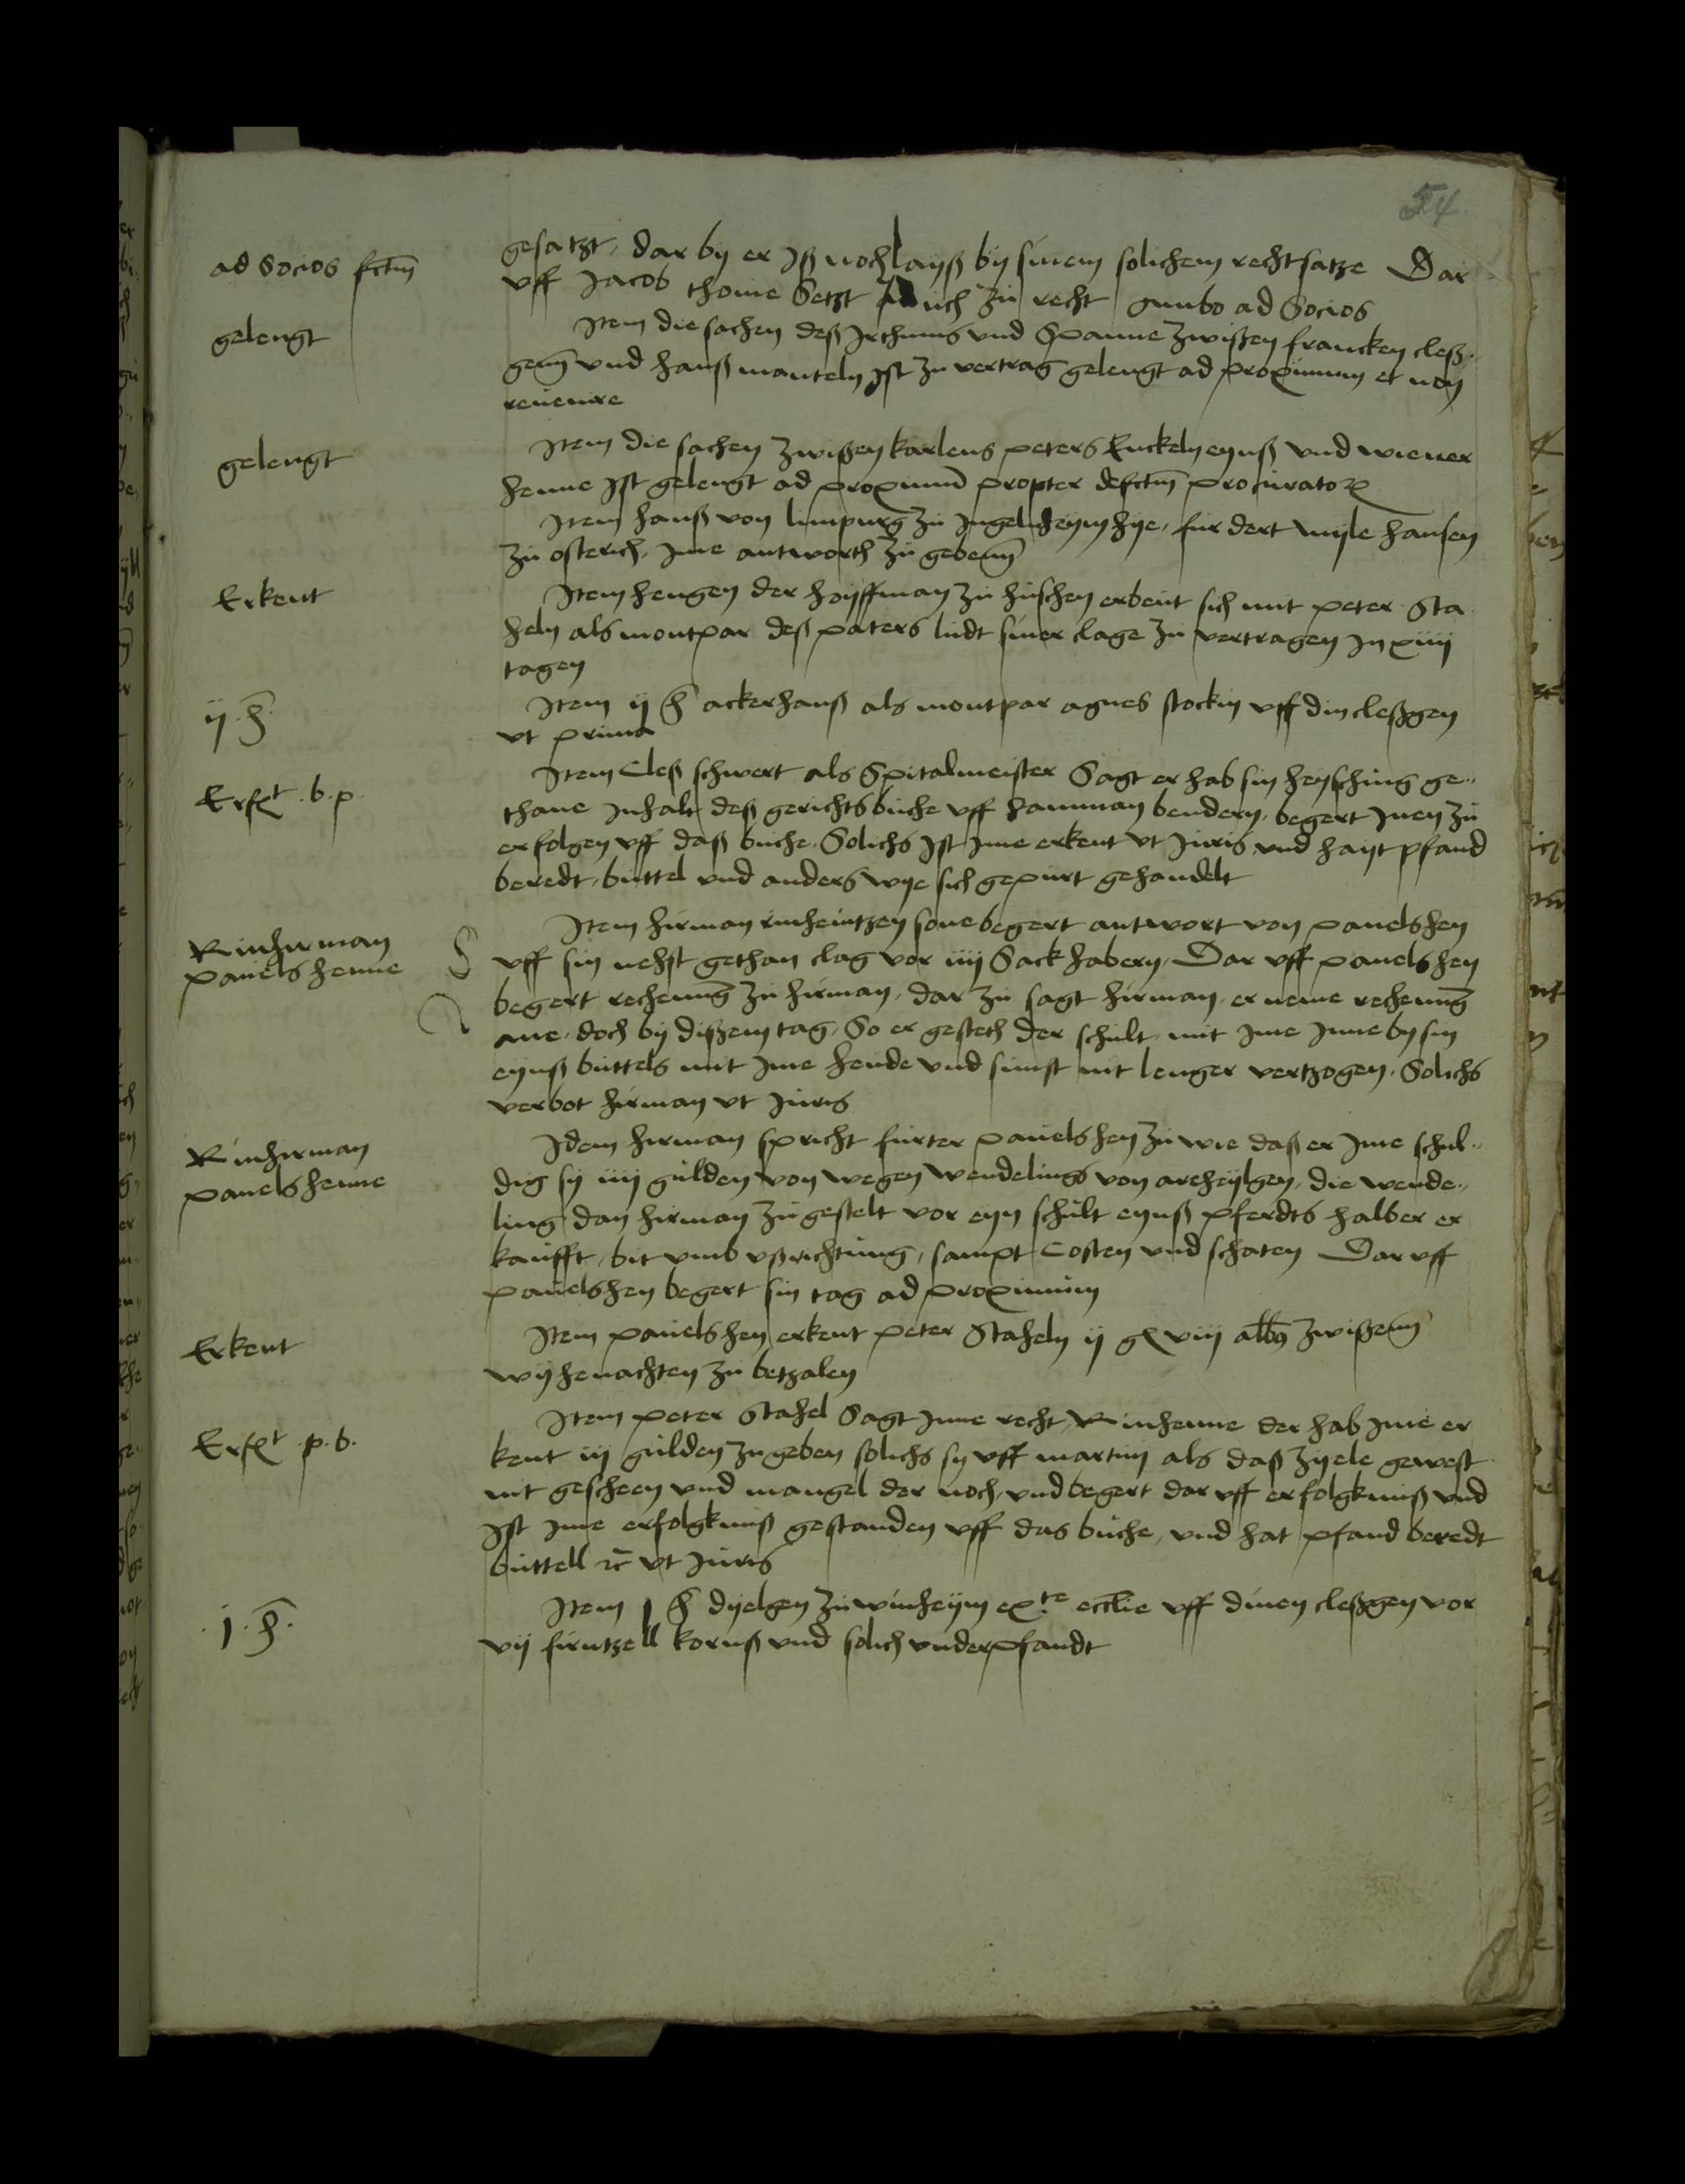 54
ad Socios fctm̄
gesatzt, dar by er Jß noch layß by sinem solichem rechtsatze Dar
uff Jacob thome Setzt Auch zu recht ambo ad Socios
gelengt
Item die sachen deß Irthums vnd Spanne zwißen francken cleß
gem̄ vnd hanß manteln Ist zu vertrag gelengt ad proximum et non
reuenire
gelengt
Item die sachen zwißen karlens peters Enckeln eynß vnd wiener
henne Ist gelengt ad proximum̄ propter defctm̄ procurator
Item hanß von limpurg zu Ingelnheym hye, fur dert wyle hansen
zu osterich, Ime antworth zu geben
Erkent
Item hengen der hoyffman zu huschen erbeut sich mit peter Sta
heln als montpar deß paters ludt siner clage zu vertragen In xiiij
tagen
ij . h̄ .
Item ij h̄ ackerhanß als montpar agnes stockin vff din cleßgen
vt prima
Erfxt . b . p .
Item Cleß schwert als Spitalmeister Sagt er hab sin heysching ge„
thane Inhalt deß gerichtsbuche vff hamman bendern, begert Inen zu
erfolgen vff daß buche. Solichs Ist Ime erkent vt Juris vnd hayt pfand
beredt, buttel vnd anders wye sich gepurt gehandelt
Rinhirman
pauels henne
Item hirman rinheintzen sone begert antwort von pauelshen
vff sin nehst gethan clag vor iiij Sack habern, Dar vff pauelshen
begert rechenūg zu hirman, dar zu sagt hirman, er neme rechenūg
ane, doch by dißem tag, So er gesteth der schult, mit Ime Inne by sin
eynß buttels mit Ime hende vnd sunst nit lenger vertzogen, Solichs
verbot hirman vt Juris
Rinhirman
pauels henne
Idem hirman spricht furter pauelshen zu wie daß er Ime schul„
dig sy iiij gulden von wegen wendelings von areheylgen, die wende„
ling dan hirman zugestelt vor eyn schult eynß pferdts halber er
kaufft, bit vmb vßrichtung, sampt Costen vnd schaten Dar vff
pauelshen begert sin tag ad proximum
Erkent
Item pauelshen erkent peter Staheln ij gl viij albs zwißen
wyhenachten zu betzalen
Erfxt . p . b .
Item peter Stahel Sagt Inne recht, Rinhenne der hab Ime er
kent iij gulden zu geben solichs sy vff martini als daß zyele gewest
nit gescheen vnd mangel der noch, vnd begert dar vff erfolgkniß vnd
Ist Ime erfolgkniß gestanden vff das buche, vnd hat pfand beredt
buttell rc̄ vt Juris
. j . h̄ .
Item j h̄ dyelgen zu winheym exte ecclie vff dinen cleßgen vor
vij firntzell kornß vnd solich vnderpfandt